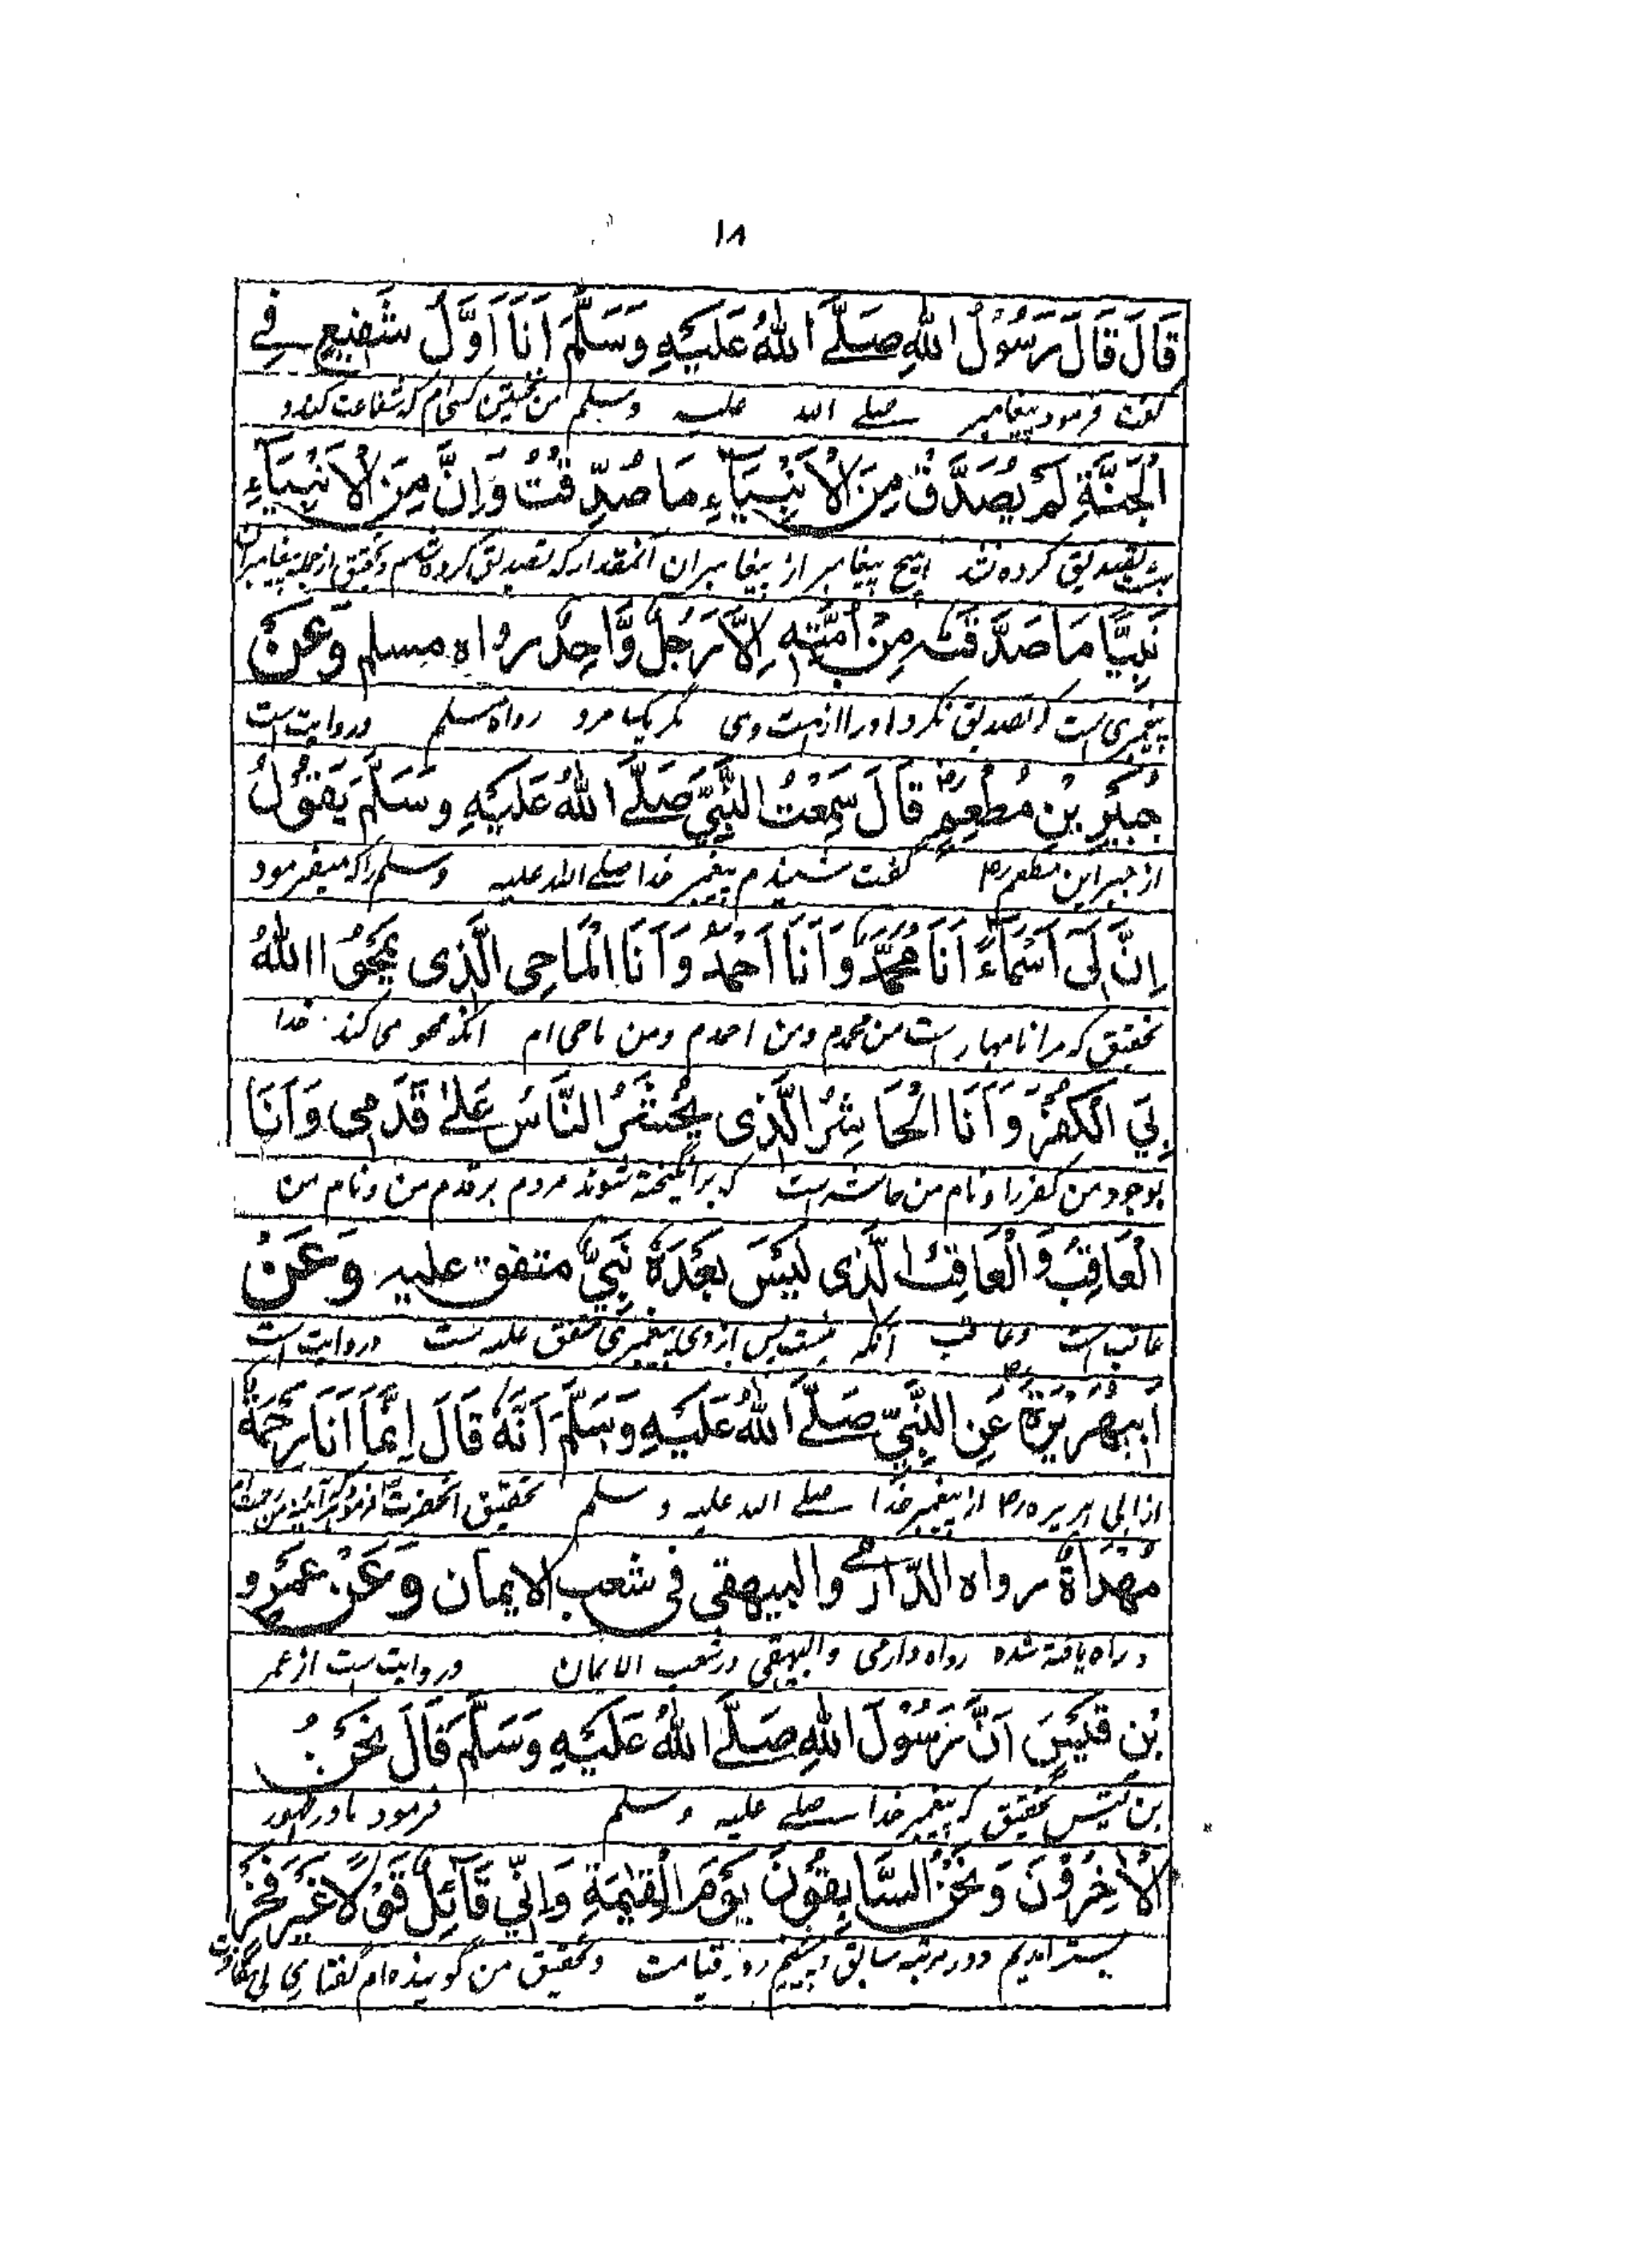 ۱۸
قَالَ قَالَ رَسُوْلُ اللهِ صَلَّے اللهُ عَلَیْهِ وَسَلَّمَ اَنَا اَوَّلُ شَفِیْعٍ فِے
گفت فرمود پیغامبر صلے الله علیه وسلم من نخستین کسی ام که شفاعت کند در
الْجَنَّةِ لَمْ یُصَدَّقْ مِنَ الْاَنْبِیَآءِ مَا صُدِّقْتُ وَاِنَّ مِنَ الْاَنْبِیَآءِ
بهشت تصدیق کرده نشد هیچ پیغامبر از پیغامبران آنمقدار که تصدیق کرده شدم وتحقیق از جمله پیغامبران
نَبِیًّا مَا صَدَّقَهٗ مِنْ اُمَّتِهٖ اِلَّا رَجُلٌ وَّاحِدٌ رواه مسلم وَعَنْ
پیغمبری است که تصدیق نکرد اورا از امت وی مگر یک مرد رواه مسلم وروایت است
جُبَیْرِ بْنِ مُطْعِمٍ رض قَالَ سَمِعْتُ النَّبِیَّ صَلَّے اللهُ عَلَیْهِ وَسَلَّمَ یَقُوْلُ
از جبیر ابن مطعم رض گفت شنیدم پیغمبر خدا صلے الله علیه وسلم را که میفرمود
اِنَّ لِیْ اَسْمَآءً اَنَا مُحَمَّدٌ وَاَنَا اَحْمَدُ وَاَنَا الْمَاحِی الَّذِی یَمْحُو اللهُ
تحقیق که مرا نامها است من محمدم ومن احمدم ومن ماحی ام آنکه محو میکند خدا
بِیَ الْکُفْرَ وَاَنَا الْحَاشِرُ الَّذِی یُحْشَرُ النَّاسُ عَلٰے قَدَمِی وَاَنَا
بوجود من کفر را ونام من حاشر است که برانگیخته شوند مردم بر قدم من ونام من
الْعَاقِبُ وَالْعَاقِبُ الَّذِی لَیْسَ بَعْدَهٗ نَبِیٌّ متفق علیه وَعَنْ
عاقب است وعاقب آنکه نیست پس ازوی پیغمبری متفق علیه است وروایت است
اَبِیْهُرَیْرَةَ رض عَنِ النَّبِیِّ صَلَّے اللهُ عَلَیْهِ وَسَلَّمَ اَنَّهٗ قَالَ اِنَّمَا اَنَا رَحْمَةٌ
از ابی هریره رض از پیغمبر خدا صلے الله علیه وسلم تحقیق آنحضرت فرمود
مُهْدَاةٌ رواه الدّارمے والبیهقی فی شعب الایمان وَعَنْ عَمْرِو
وراه یافته شده رواه دارمی والبیهقی در شعب الایمان وروایت است از عمر
بْنِ قَیْسٍ اَنَّ رَسُوْلَ اللهِ صَلَّے اللهُ عَلَیْهِ وَسَلَّمَ قَالَ نَحْنُ
بن قیس تحقیق که پیغمبر خدا صلے علیه وسلم فرمود ما در ظهور
الْاٰخِرُوْنَ وَنَحْنُ السَّابِقُوْنَ یَوْمَ الْقِیٰمَةِ وَاِنِّیْ قَآئِلٌ قَوْلًا غَیْرَ فَخْرٍ
پستر آمدیم ودر مرتبه سابق وپیشیم روز قیامت وتحقیق من گوینده ام گفتاری